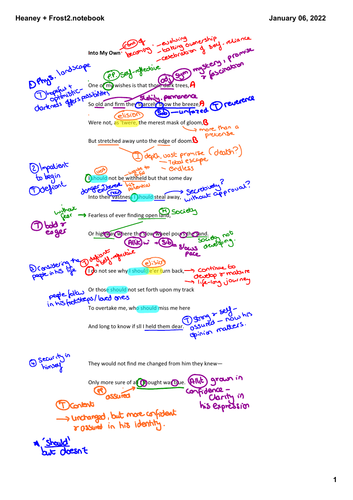 Heaney + Frost2.notebook
January 06, 2022
Into My Own
becoming
- evolving
- taking ownership
- celebration of self-reliance
① Phys. landscape
self-reflective
mystery, promise
& fascination
Ⓣ hopeful &
optimistic-
darkness offers possibilities
One of my wishes is that those dark trees, A
stability, permanence
So old and firm they scarcely show the breeze, A
Ⓣ reverence
elision
Sib - unfazed
Were not, as 'twere, the merest mask of gloom, B
→ more than a
pretense
But stretched away unto the edge of doom. B
① depth, vast promise (death?)
- Total escape
- endless
② Impatient
to begin
Ⓣ defiant
I should not be withheld but that some day
danger
his
potential
Secretively?
without approval?
Into their vastness I should steal away,
without
fear
Ⓣ bold &
eager
→ Fearless of ever finding open land,
Society
Or highway where the slow wheel pours the sand.
society not
developing
Allit
Sib
slows
pace
③ Considering the
people in his life
Ⓣ defiant
& self-reflective
elision
I do not see why I should e'er turn back,
→ continue to
develop & mature
→ life-long journey
people follow
in his footsteps/loved ones
Or those should not set forth upon my track
To overtake me, who should miss me here
Ⓣ strong & self-
assured - now his
opinion matters.
And long to know if still I held them dear.
④ Security in
himself
They would not find me changed from him they knew—
Only more sure of all I thought was true.
Allit
grown in
confidence -
Clarity in
his expression
assured
Ⓣ Content
→ unchanged, but more confident
& assured in his identity.
* 'should'
but doesn't
1